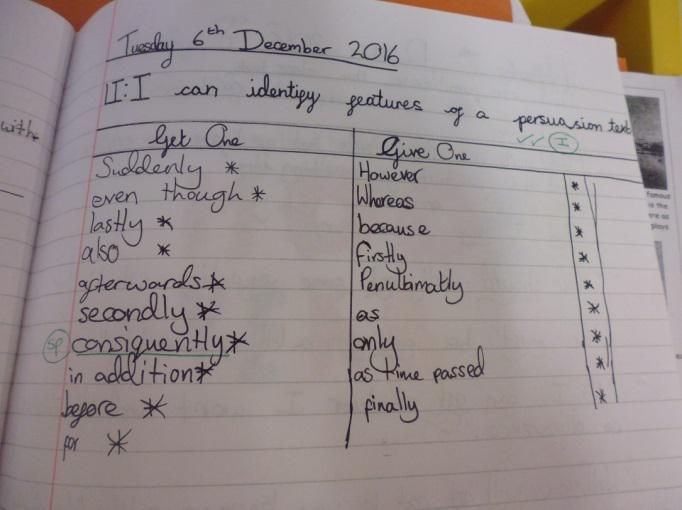 Tuesday 6th December 2016
LI: I can identify features of a persuasion text
✓✓ I
Get One
Give One
Suddenly *
even though *
lastly *
also *
afterwards *
secondly *
sp consiquently *
in addition *
before *
for *
However *
Whereas *
because *
firstly *
Penultimatly *
as *
only *
as time passed *
finally *
with
famous
is the
ere as
plays